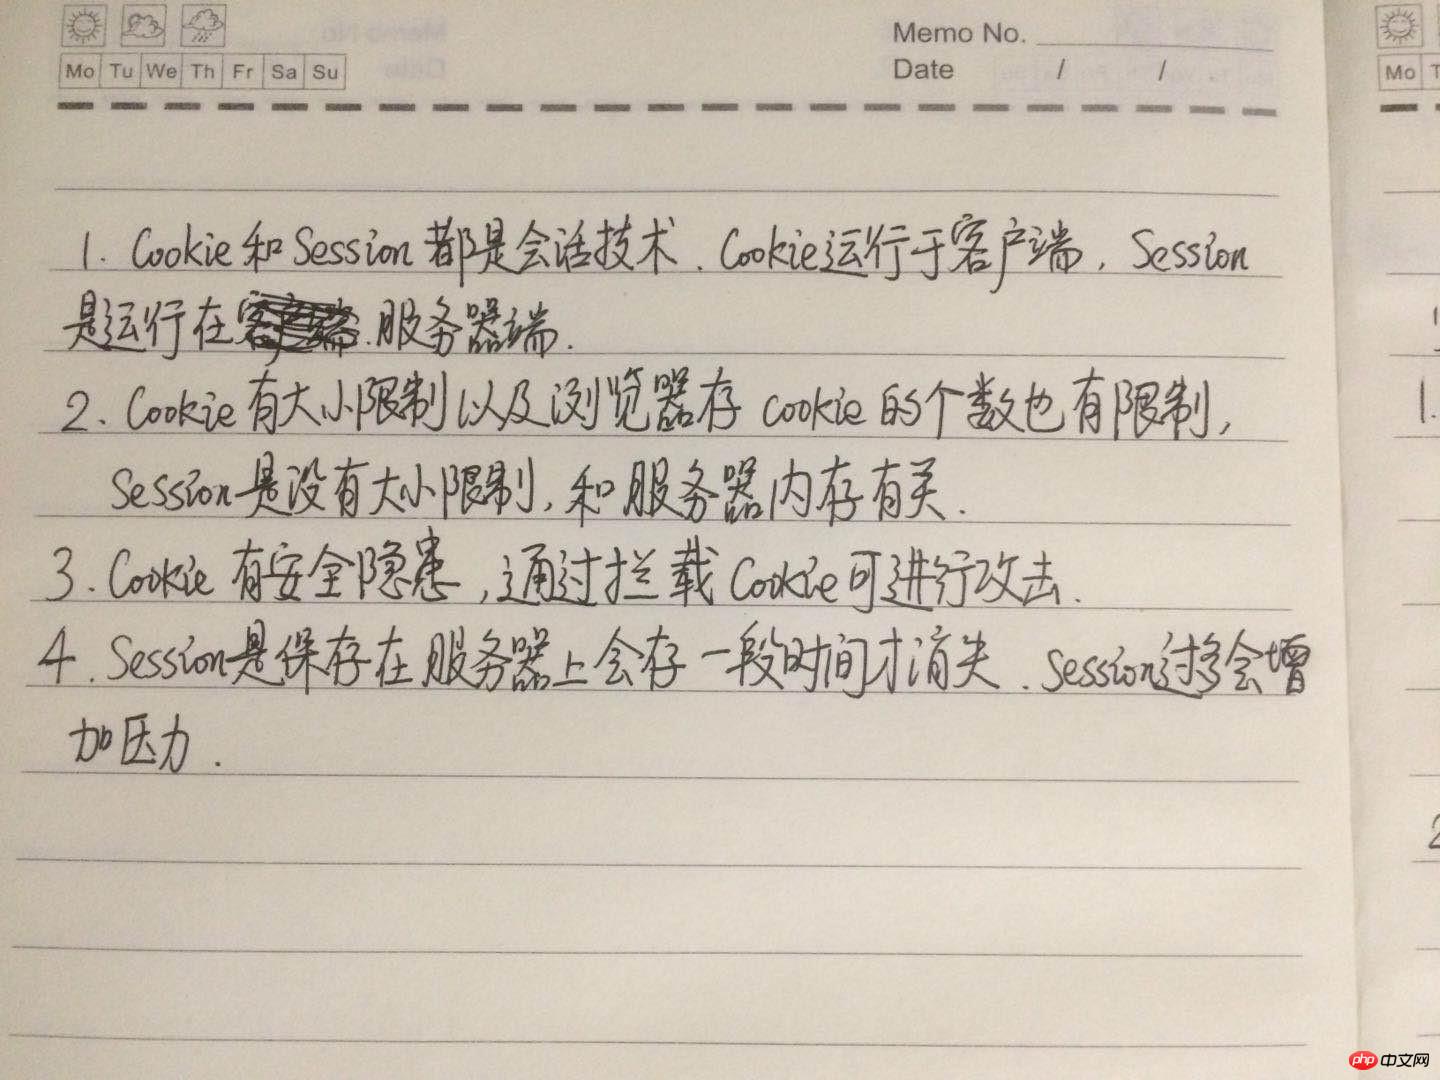 Memo No.
Mo Tu We Th Fr Sa Su
Date / /
Mo
1. Cookie和Session都是会话技术.Cookie运行于客户端,Session
是运行在服务器端.
2. Cookie有大小限制以及浏览器存cookie的个数也有限制,
Session是没有大小限制,和服务器内存有关.
3. Cookie有安全隐患,通过拦截Cookie可进行攻击.
4. Session是保存在服务器上会存一段时间才消失.Session过多会增
加压力.
1.
2
php中文网